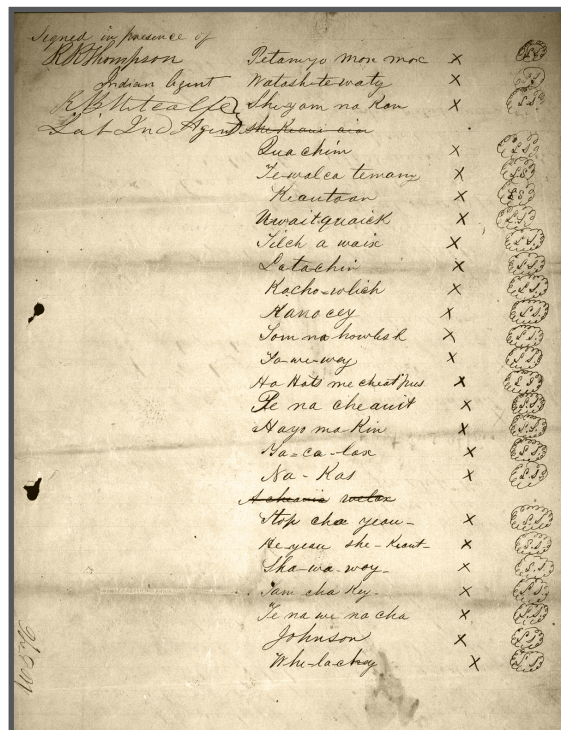 Signed in presence of
R R Thompson Petamyo mox mox X L S
Indian Agent Watash-te waty X L S
She-yam na Kon X L S
Sub Ind Agent She Keaus aim
Qua chim X L S
Te-walca temany X L S
Keautoan X L S
Uwaitquaick X L S
Tilch a waix X L S
Latachin X L S
Kacho-wlich X L S
Kanocey X L S
Som na howlish X L S
Ta-we-way X L S
Ha Hats me cheat pus X L S
Pe na cheanit X L S
Hayo ma Kin X L S
Ya-ca-lox X L S
Na-Kas X L S
Stop cha yeou- X L S
He-yeau she-Keaut- X L S
Sha-wa-way- X L S
Tam cha Key- X L S
Te na we na cha X L S
Johnson X L S
Whe-la-chey X L S